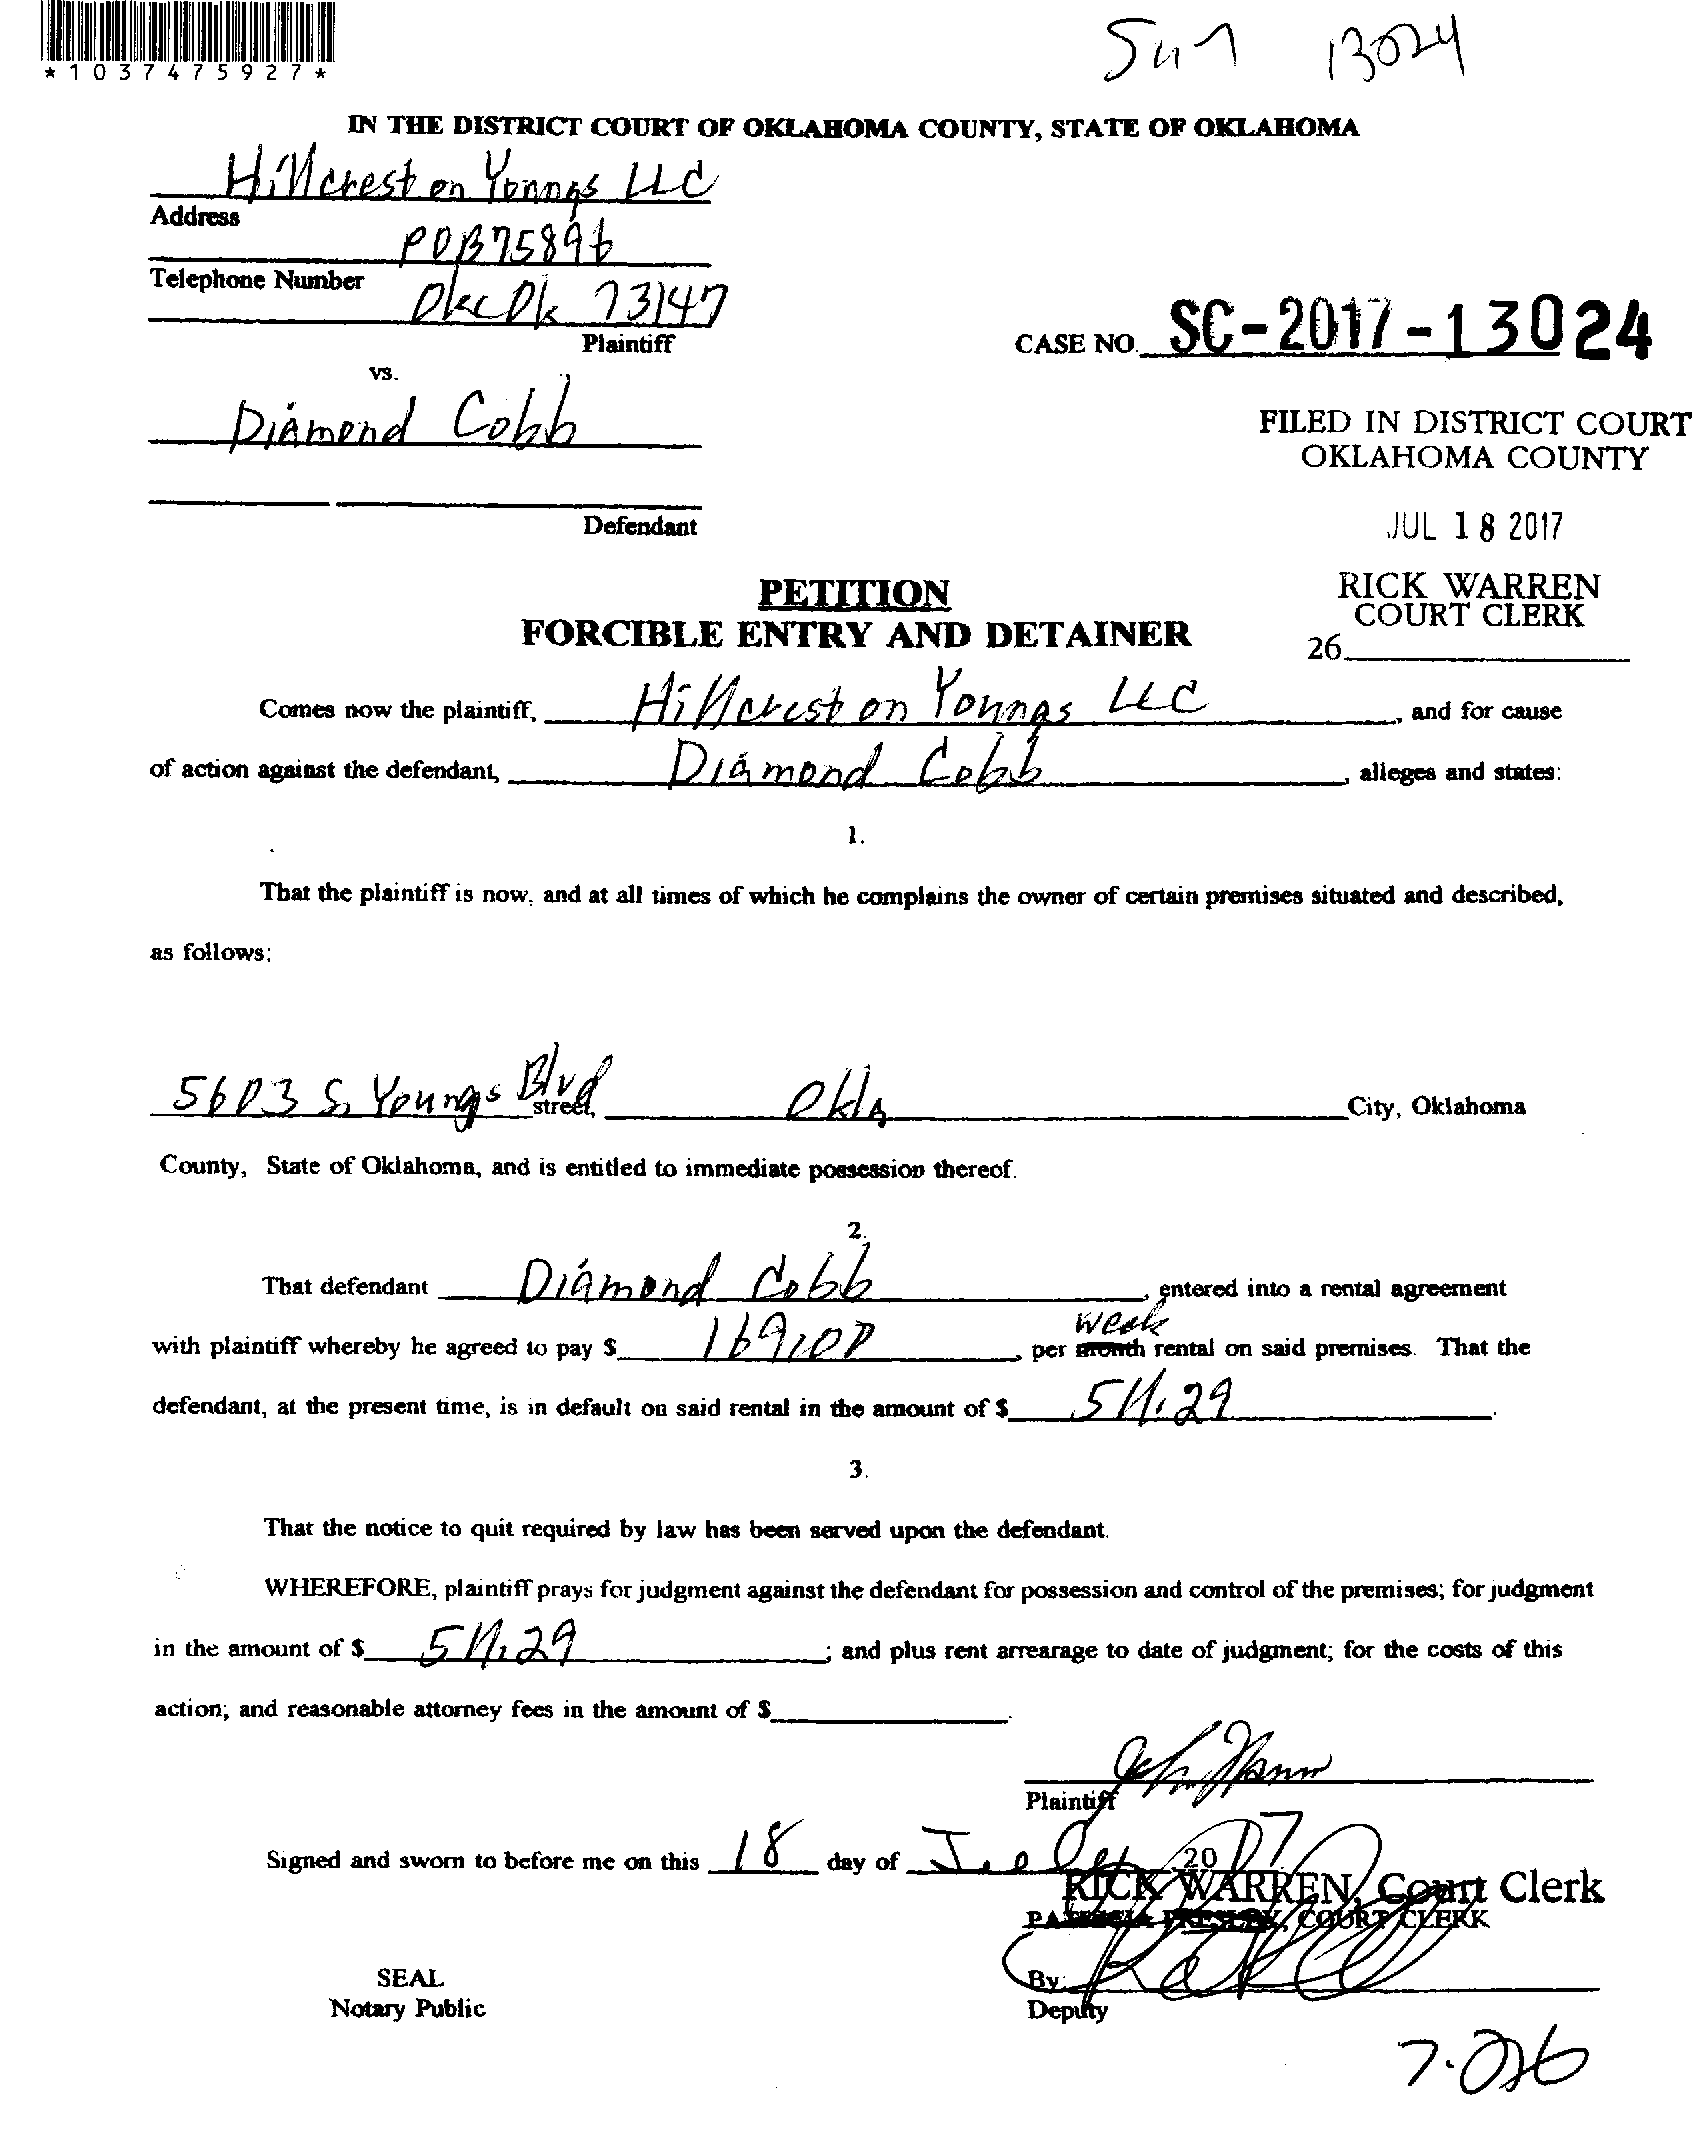 *1037475927*
13024
IN THE DISTRICT COURT OF OKLAHOMA COUNTY, STATE OF OKLAHOMA
Hillcrest on Youngs LLC
Address
POB 75896
Telephone Number
Okc Ok 73147
Plaintiff
CASE NO. SC-2017-13024
vs.
Diamond Cobb
FILED IN DISTRICT COURT
OKLAHOMA COUNTY
Defendant
JUL 18 2017
PETITION
RICK WARREN
COURT CLERK
FORCIBLE ENTRY AND DETAINER
26
Comes now the plaintiff, Hillcrest on Youngs LLC, and for cause
of action against the defendant, Diamond Cobb, alleges and states:
1.
That the plaintiff is now, and at all times of which he complains the owner of certain premises situated and described,
as follows:
5603 S. Youngs Blvd street, Okla City, Oklahoma
County, State of Oklahoma, and is entitled to immediate possession thereof.
2.
That defendant Diamond Cobb, entered into a rental agreement
with plaintiff whereby he agreed to pay $ 169.00, per month week rental on said premises. That the
defendant, at the present time, is in default on said rental in the amount of $ 511.29.
3.
That the notice to quit required by law has been served upon the defendant.
WHEREFORE, plaintiff prays for judgment against the defendant for possession and control of the premises; for judgment
in the amount of $ 511.29; and plus rent arrearage to date of judgment; for the costs of this
action; and reasonable attorney fees in the amount of $ .
Plaintiff
Signed and sworn to before me on this 18 day of July 2017
RICK WARREN, Court Clerk
PATRICIA PRESLEY, COURT CLERK
SEAL
By:
Notary Public
Deputy